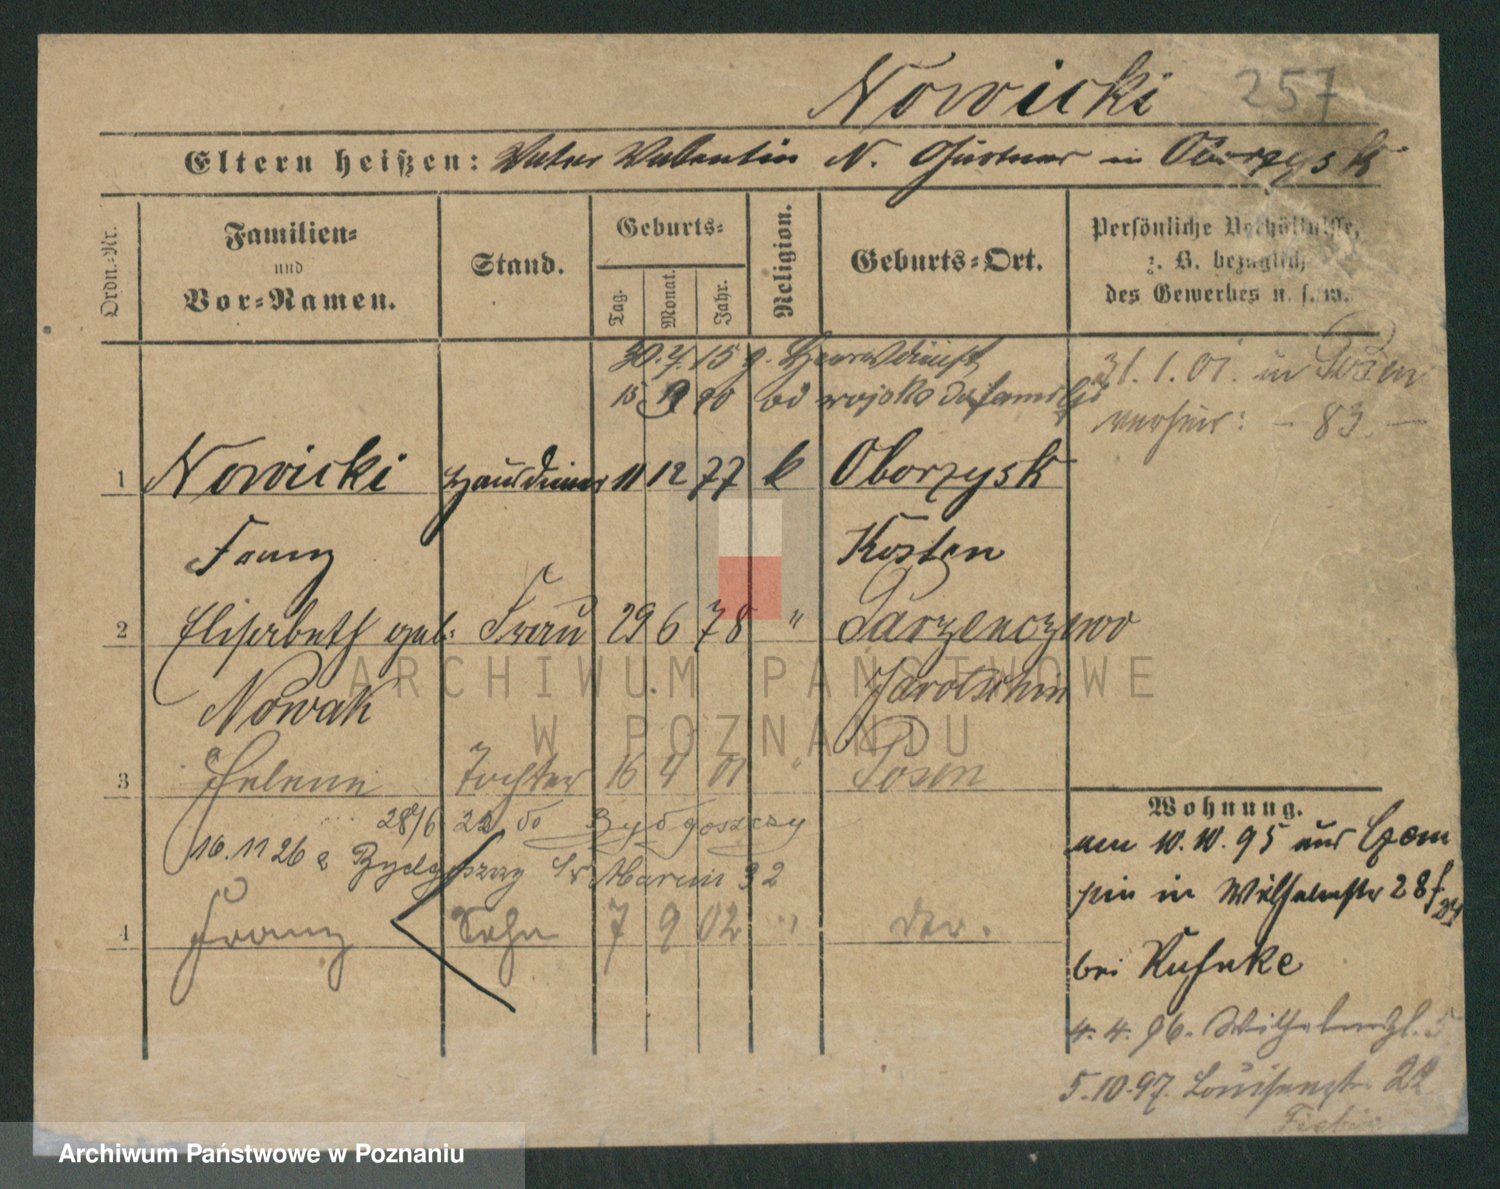 Nowicki 257
Eltern heißen: Vater Valentin N. Gärtner in Oborzysk
Ordn.-Nr.
Familien-
und
Vor-Namen.
Stand.
Geburts-
Tag.
Monat.
Jahr.
Religion.
Geburts-Ort.
Persönliche Verhältnisse,
z. B. bezüglich
des Gewerbes u. s. w.
30. 7. 15 z. Heeresdienst
15 9 20 od wojska do familji
31. 1. 01. in Posen
verheir: - 83. -
1 Nowicki Hausdiener 11 12 77 k Oborzysk
Franz Kosten
2 Elisabeth geb: Frau 29 6 78 " Parzenczewo
Nowak Jarotschin
3 Helene Tochter 16 4 01 " Posen
28/6 22 do Bydgoszczy
16.11 26 z Bydgoszczy Św Marcin 32
4 Franz Sohn 7 9 02 " der.
Wohnung.
am 10. 10. 95 aus
in Wilhelmstr 28/
bei Kuhnke
4. 4. 96. Wilhelmspl. 5
5. 10. 97. Louisenstr 22
ARCHIWUM PAŃSTWOWE
W POZNANIU
Archiwum Państwowe w Poznaniu